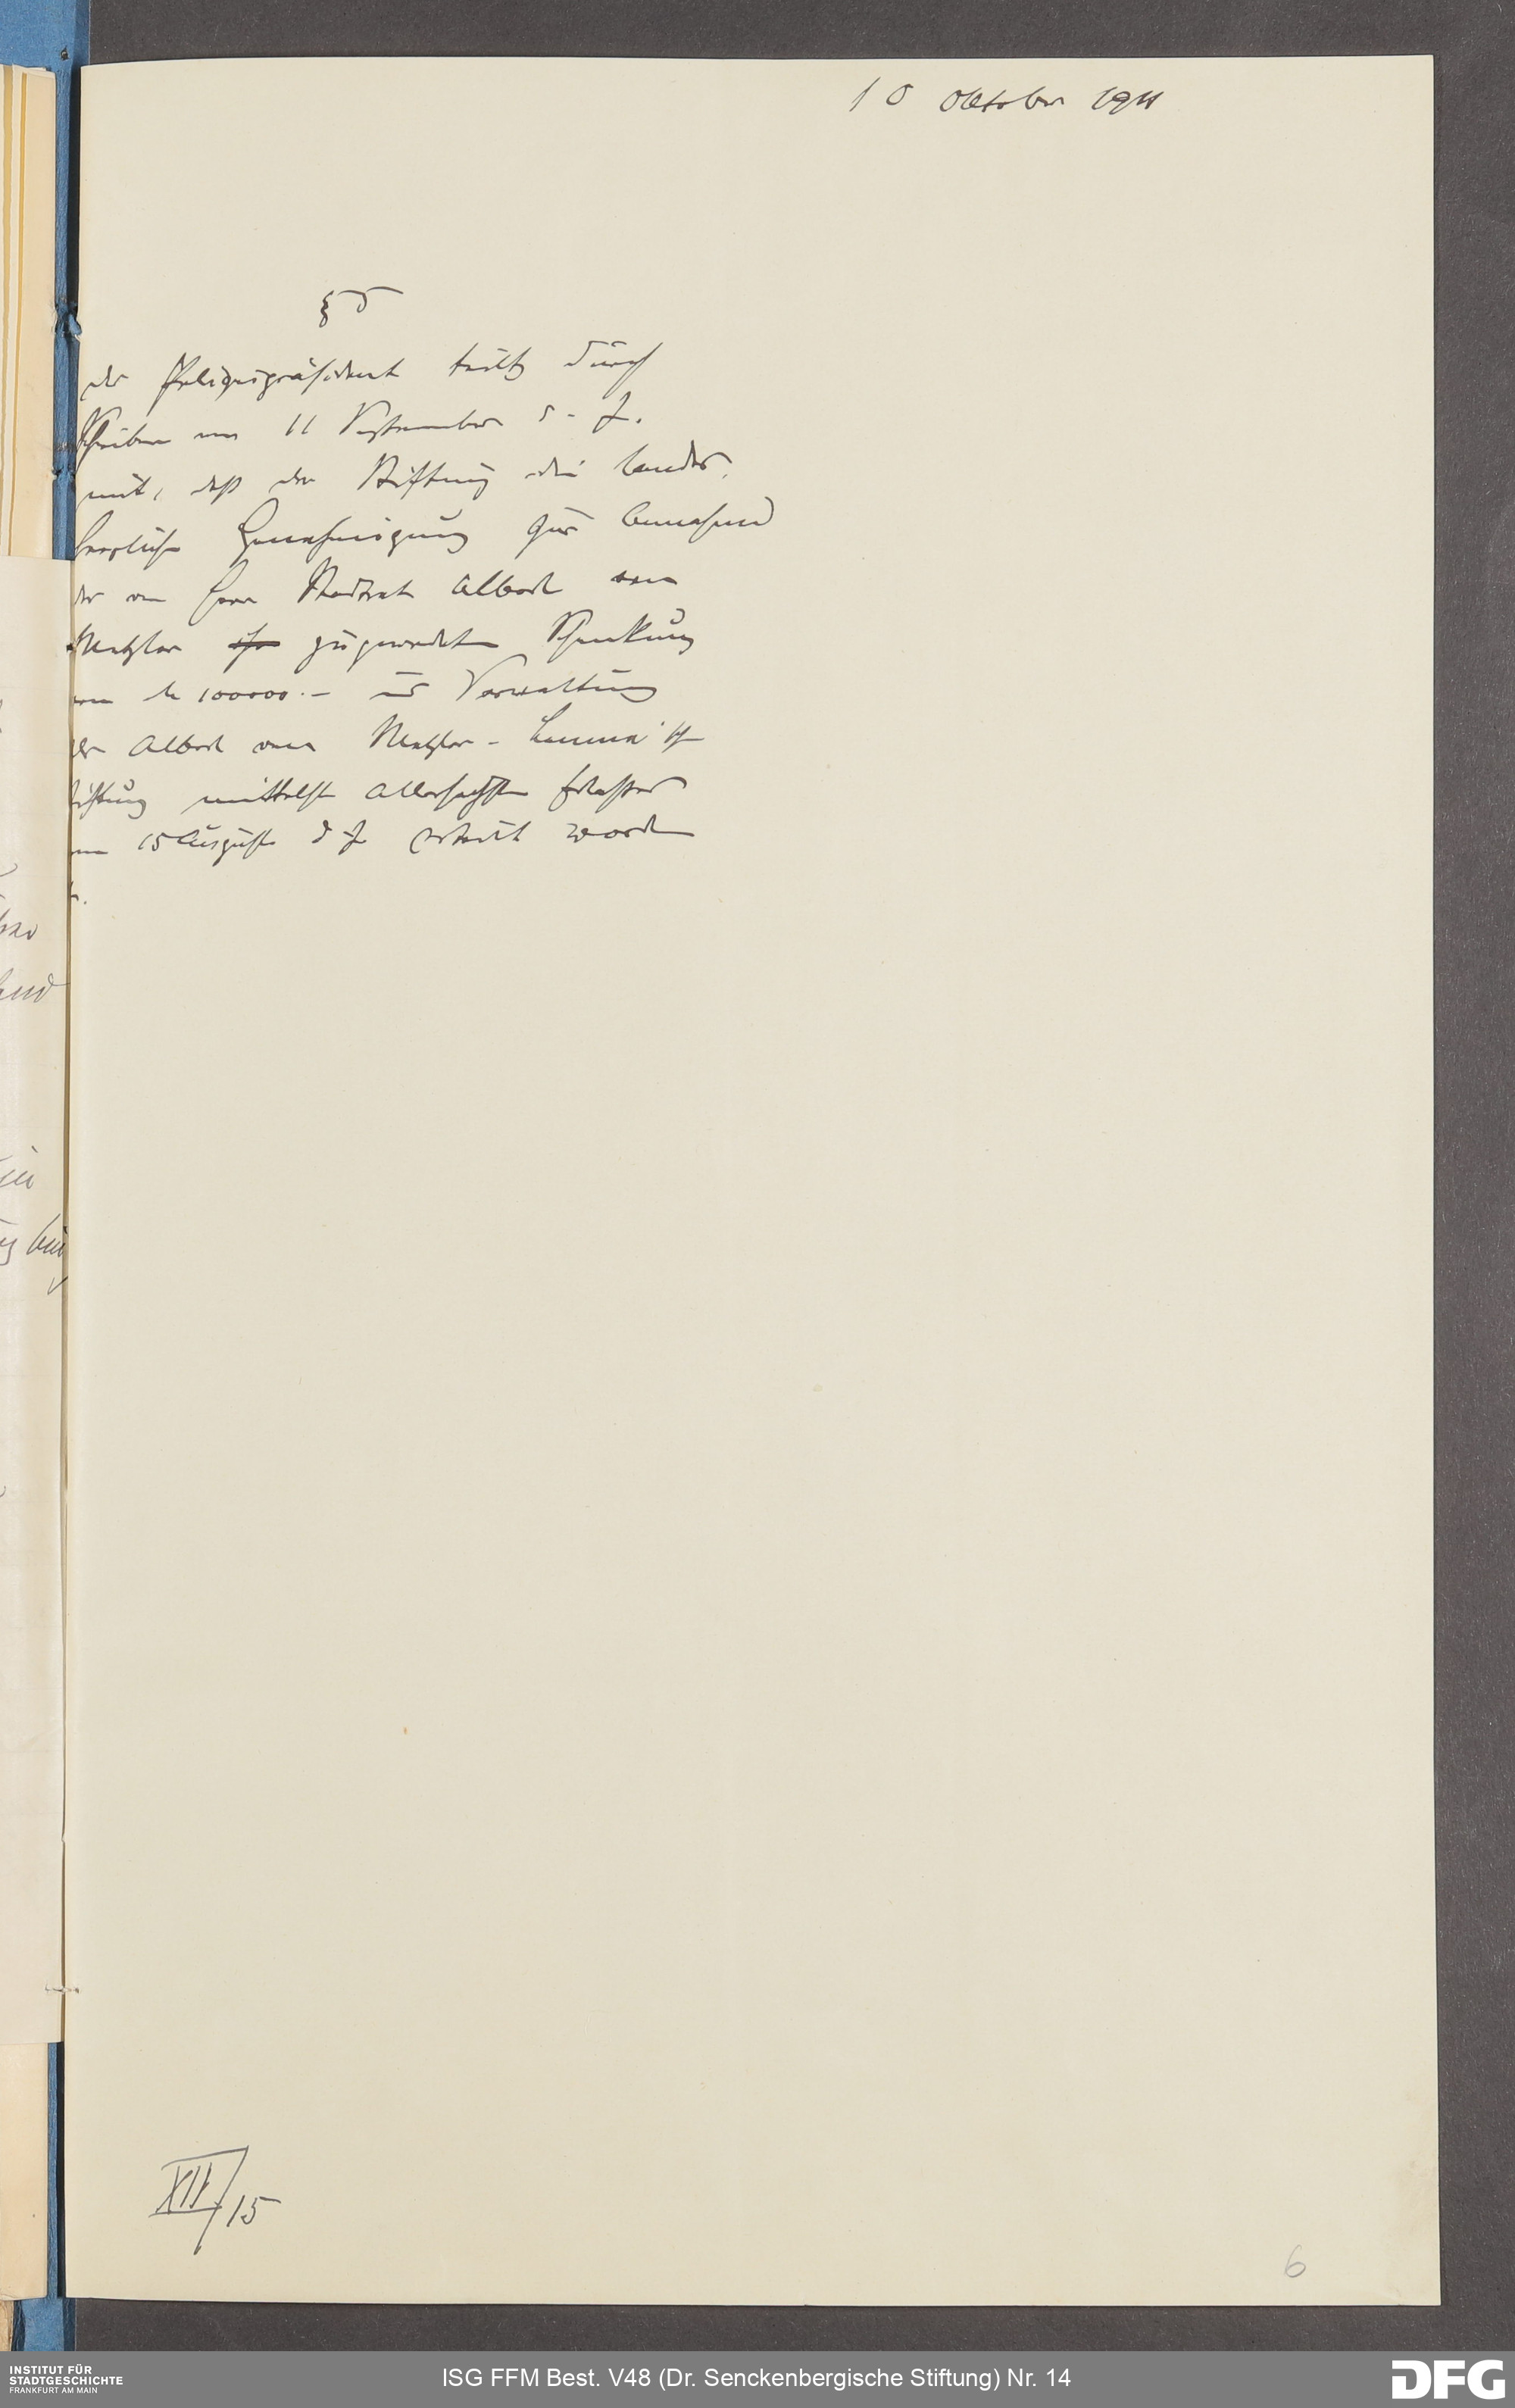 10 Oktober 1911
§ 5
der Polizeipräsident teilt durch
Schreiben vom 11 September d. J.
mit, daß der Stiftung die landes-
herrliche Genehmigung zur Annahme
der von Herrn Stadtrat Albert von
Metzler zugewendeten Schenkung
von M 100000.– zur Verwaltung
der Albert von Metzler-
Stiftung mittelst Allerhöchsten Erlasses
vom 15 August d J erteilt worden
XII/15
6
INSTITUT FÜR
STADTGESCHICHTE
FRANKFURT AM MAIN
ISG FFM Best. V48 (Dr. Senckenbergische Stiftung) Nr. 14
DFG